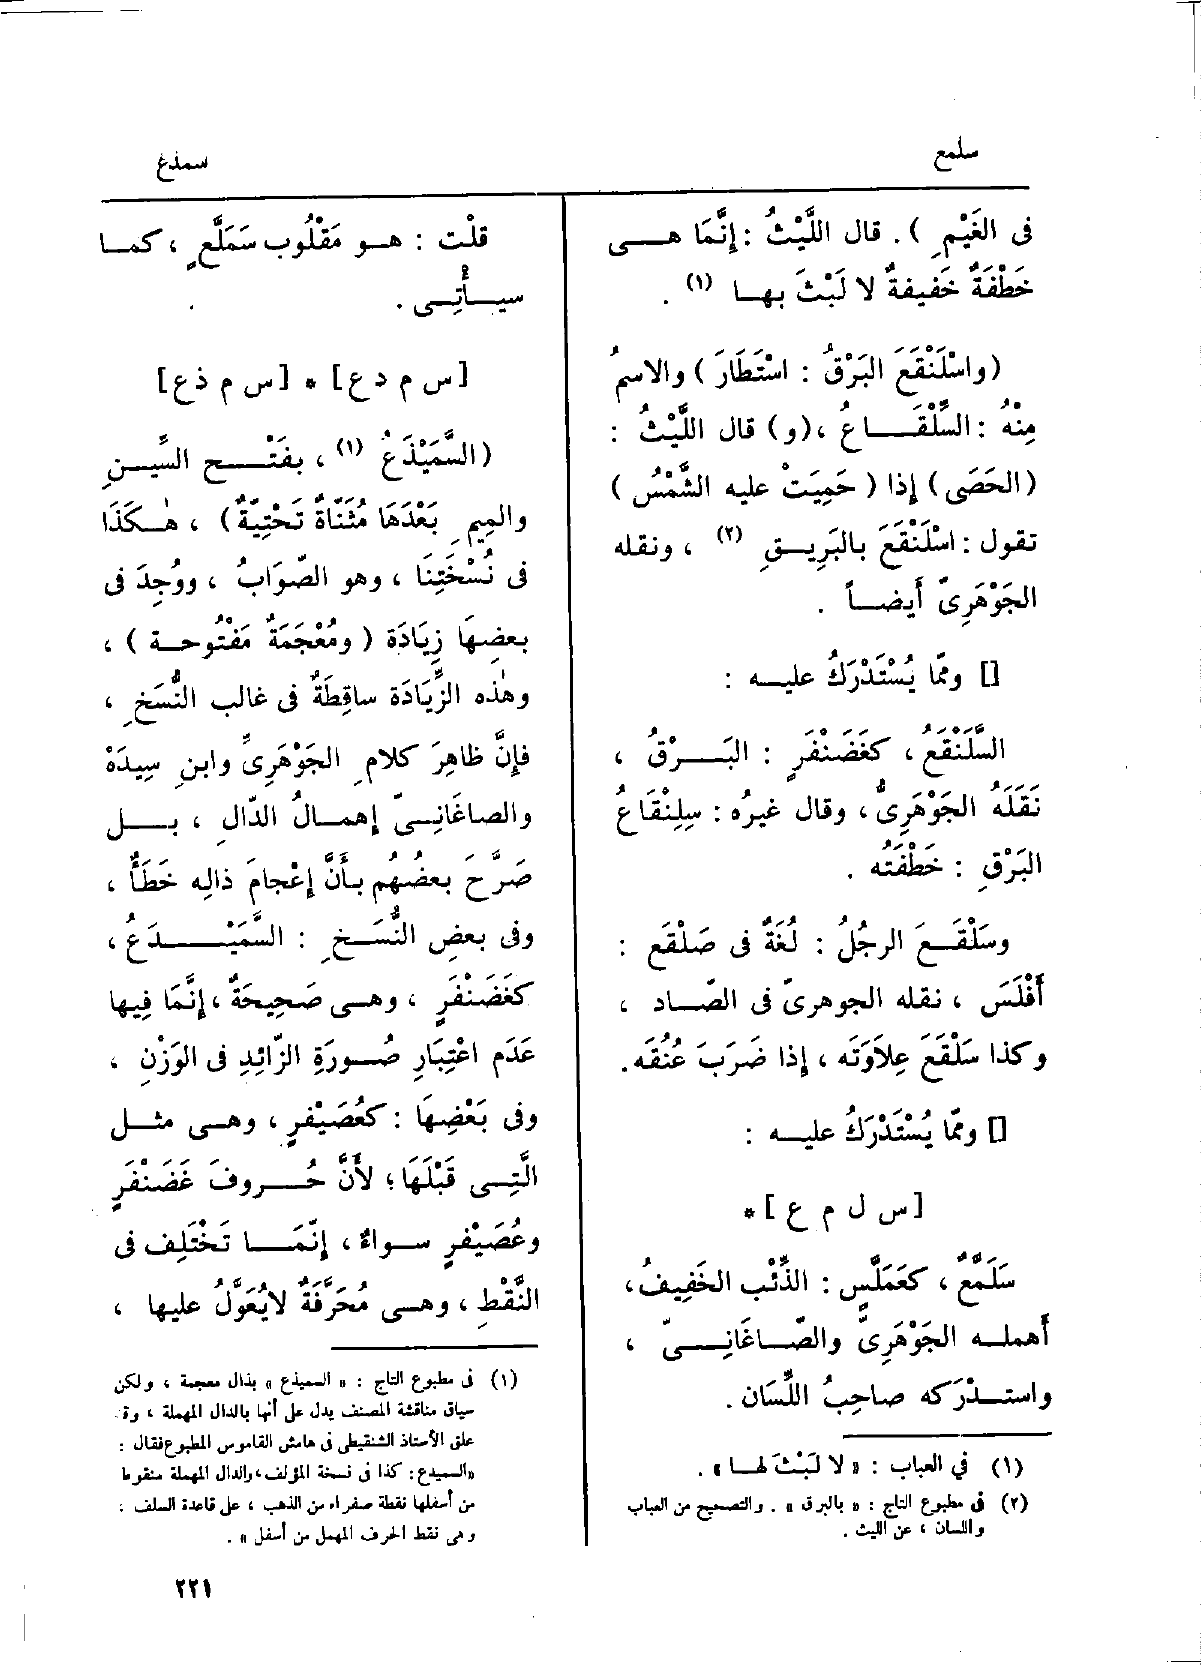 سلمع
سمدغ
فى الغَيْمِ ) . قال اللَّيْثُ : إِنَّمَا هـى
خَطْفَةٌ خَفِيفةٌ لا لَبْثَ بهـا (١) .
(واسْلَنْقَعَ البَرْقُ : اسْتَطَارَ ) والاسمُ
مِنْهُ : السِّلْقَـاعُ ، (و) قال اللَّيْثُ :
(الحَصَى) إذا ( حَمِيَتْ عليه الشَّمْسُ )
تقول : اسْلَنْقَعَ بالبَرِيـقِ (٢) ، ونقله
الجَوْهَرِىّ أَيضـاً .
[] وممّا يُسْتَدْرَكُ عليـه :
السَّلَنْقَعُ ، كغَضَنْفَرٍ : البَـرْقُ ،
نَقَلَهُ الجَوْهَرِىُّ ، وقال غيرُه : سِلِنْقَاعُ
البَرْقِ : خَطْفَتُه .
وسَلْقَـعَ الرجُلُ : لُغَةٌ فى صَلْقَع :
أَفْلَسَ ، نقله الجوهرىّ فى الصّـاد ،
وكذا سَلْقَعَ عِلاَوَتَه ، إذا ضَرَبَ عُنُقَه.
[] وممّا يُسْتَدْرَكُ عليـه :
[س ل م ع ] *
سَلَمَّعٌ ، كعَمَلَّسٍ : الذِّئْب الخَفِيفُ،
أَهملـه الجَوْهَرِىُّ والصّـاغَانِـىّ ،
واستـدْرَكه صاحِبُ اللِّسَان .
(١) في العباب : « لا لَبْثَ لهـا » .
(٢) فى مطبوع التاج : « بالبرق » . والتصحيح من العباب
واللسان ، عن الليث .
قلْت : هـو مَقْلُوب سَمَلَّعٍ ، كمـا
سيـأْتِـى .
[س م د ع] * [س م ذ ع]
(السَّمَيْذَعُ (١) ، بفَتْـح السِّيـنِ
والمِيمِ بَعْدَهَا مُثَنَّاةٌ تَحْتِيَّةٌ) ، هٰـكَذَا
فى نُسْخَتِنَا ، وهو الصّوَابُ ، ووُجِدَ فى
بعضِهَا زِيَادَة ( ومُعْجَمَةٌ مَفْتُوحـة ) ،
وهٰذه الزِّيَادَة ساقِطَةٌ فى غالب النُّسَخِ ،
فإِنَّ ظاهِرَ كلامِ الجَوْهَرِىِّ وابنِ سِيدَهْ
والصاغَانِـىّ إِهمـالُ الدّالِ ، بـل
صَرَّحَ بعضُهم بـأَنَّ إِعْجامَ ذالِه خَطَأٌ ،
وفى بعضِ النُّسَـخِ : السَّمَيْـدَعُ ،
كغَضَنْفَرٍ ، وهـى صَحِيحَةٌ ، إِنَّمَا فِيها
عَدَم اعْتِبَارِ صُـورَةِ الزّائِدِ فى الوَزْنِ ،
وفى بَعْضِهَا : كعُصَيْفرٍ ، وهـى مثـل
الَّتِـى قَبْلَهَا ؛ لأَنَّ حُـروفَ غَضَنْفَرٍ
وعُصَيْفرٍ سـواءٌ ، إِنّمَـا تَخْتَلِف فى
النَّقْطِ ، وهـى مُحَرَّفَةٌ لايُعَوَّلُ عليها ،
(١) فى مطبوع التاج : « السميذع » بذال معجمة ، ولكن
سياق مناقشة المصنف يدل على أنها بالدال المهملة ،
علق الأستاذ الشنقيطى فى هامش القاموس المطبوع فقال :
«السميدع: كذا فى نسخة المؤلف، والدال المهملة منقوطا
من أسفلها نقطة صفراء من الذهب ، على قاعدة السلف :
وهى نقط الحرف المهمل من أسفل » .
٢٢١